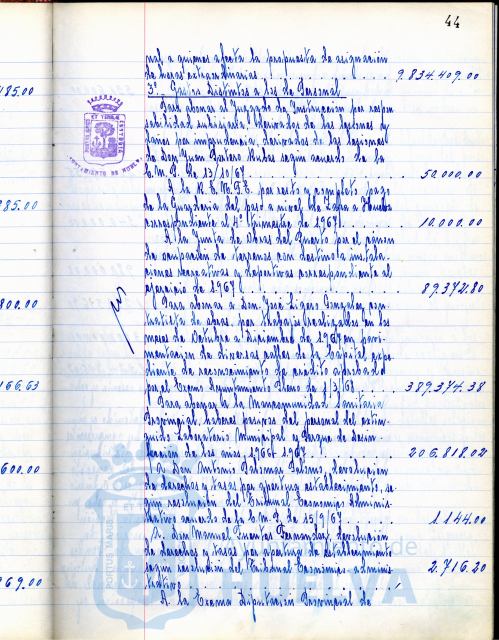 44
nal a quienes afecta la propuesta de asignación
de horas extraordinarias . . . . . 9.834.409.00
3º Gastos Distintos a los de Personal
Para abonar al Juzgado de Instrucción por respon
sabilidad subsidiaria, derivadas de las lesiones y
daños por imprudencia, derivadas de las lesiones
de Don Juan Mudas según acuerdo de la
C.M.P. de 13/10/67 . . . . . 50.000.00
A la R.E.N.F.E. por resto y completo pago
de la Guardería del paso a nivel de Zafra a Huelva
correspondiente al 4º trimestre de 1967 . . . . . 10.000.00
A la Junta de Obras del Puerto por el cánon
de ocupación de terrenos con destino a instala-
ciones recreativas y deportivas correspondiente al
ejercicio de 1967 . . . . . 87.372.80
Para abonar a Don José Ligero González, con
tratista de obras, por trabajos realizados en los
meses de Octubre a Diciembre de 1967, en pavi-
mentación de diversas calles de la Capital, expe-
diente de reconocimiento de crédito aprobado
por el Excmo Ayuntamiento Pleno de 1/3/68 . . . . . 389.374.38
Para abonar a la Mancomunidad Sanitaria
Provincial, haberes pasivos del personal del extin-
guido Laboratorio Municipal y Parque de Desin-
fección de los años 1966-1967 . . . . . 206.818.02
A Don Antonio Palomar Palomo, devolución
de derechos y tasas por apertura establecimiento, se-
gún resolución del Tribunal Económico Adminis-
trativo acuerdo de la C.M.P. de 15/9/67 . . . . . 1.144.00
A Don Manuel Fuentes Fernandez, devolución
de derechos y tasas por apertura de establecimiento
según resolución del Tribunal Económico adminis-
trativo . . . . . 2.716.20
A la Excma Diputación Provincial de
485.00
285.00
800.00
166.63
600.00
269.00
de
HUELVA
PORTUS MARIS